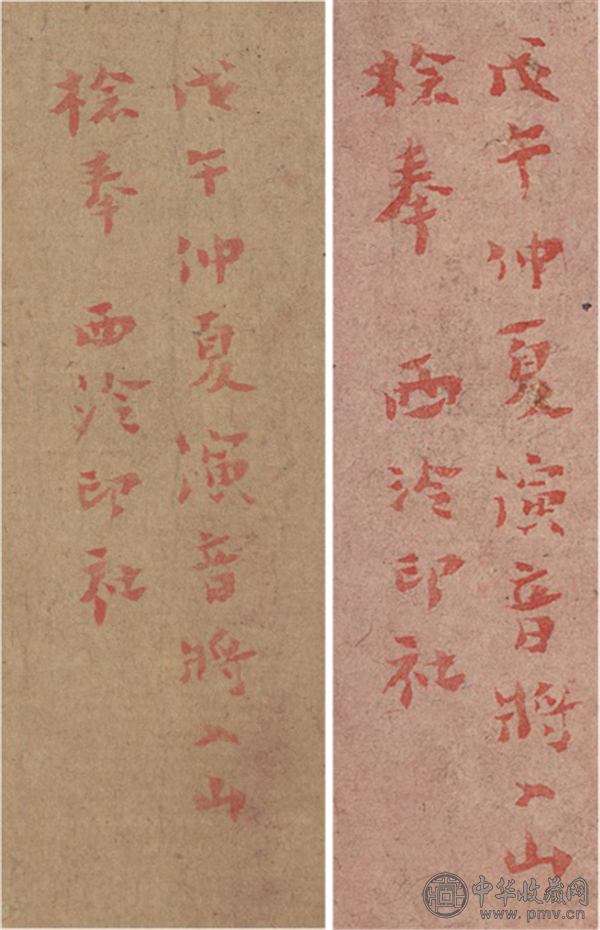 戊午仲夏演音將入山
檢奉 西泠印社
戊午仲夏演音將入山
檢奉 西泠印社
中华收藏网
www.pmv.cn